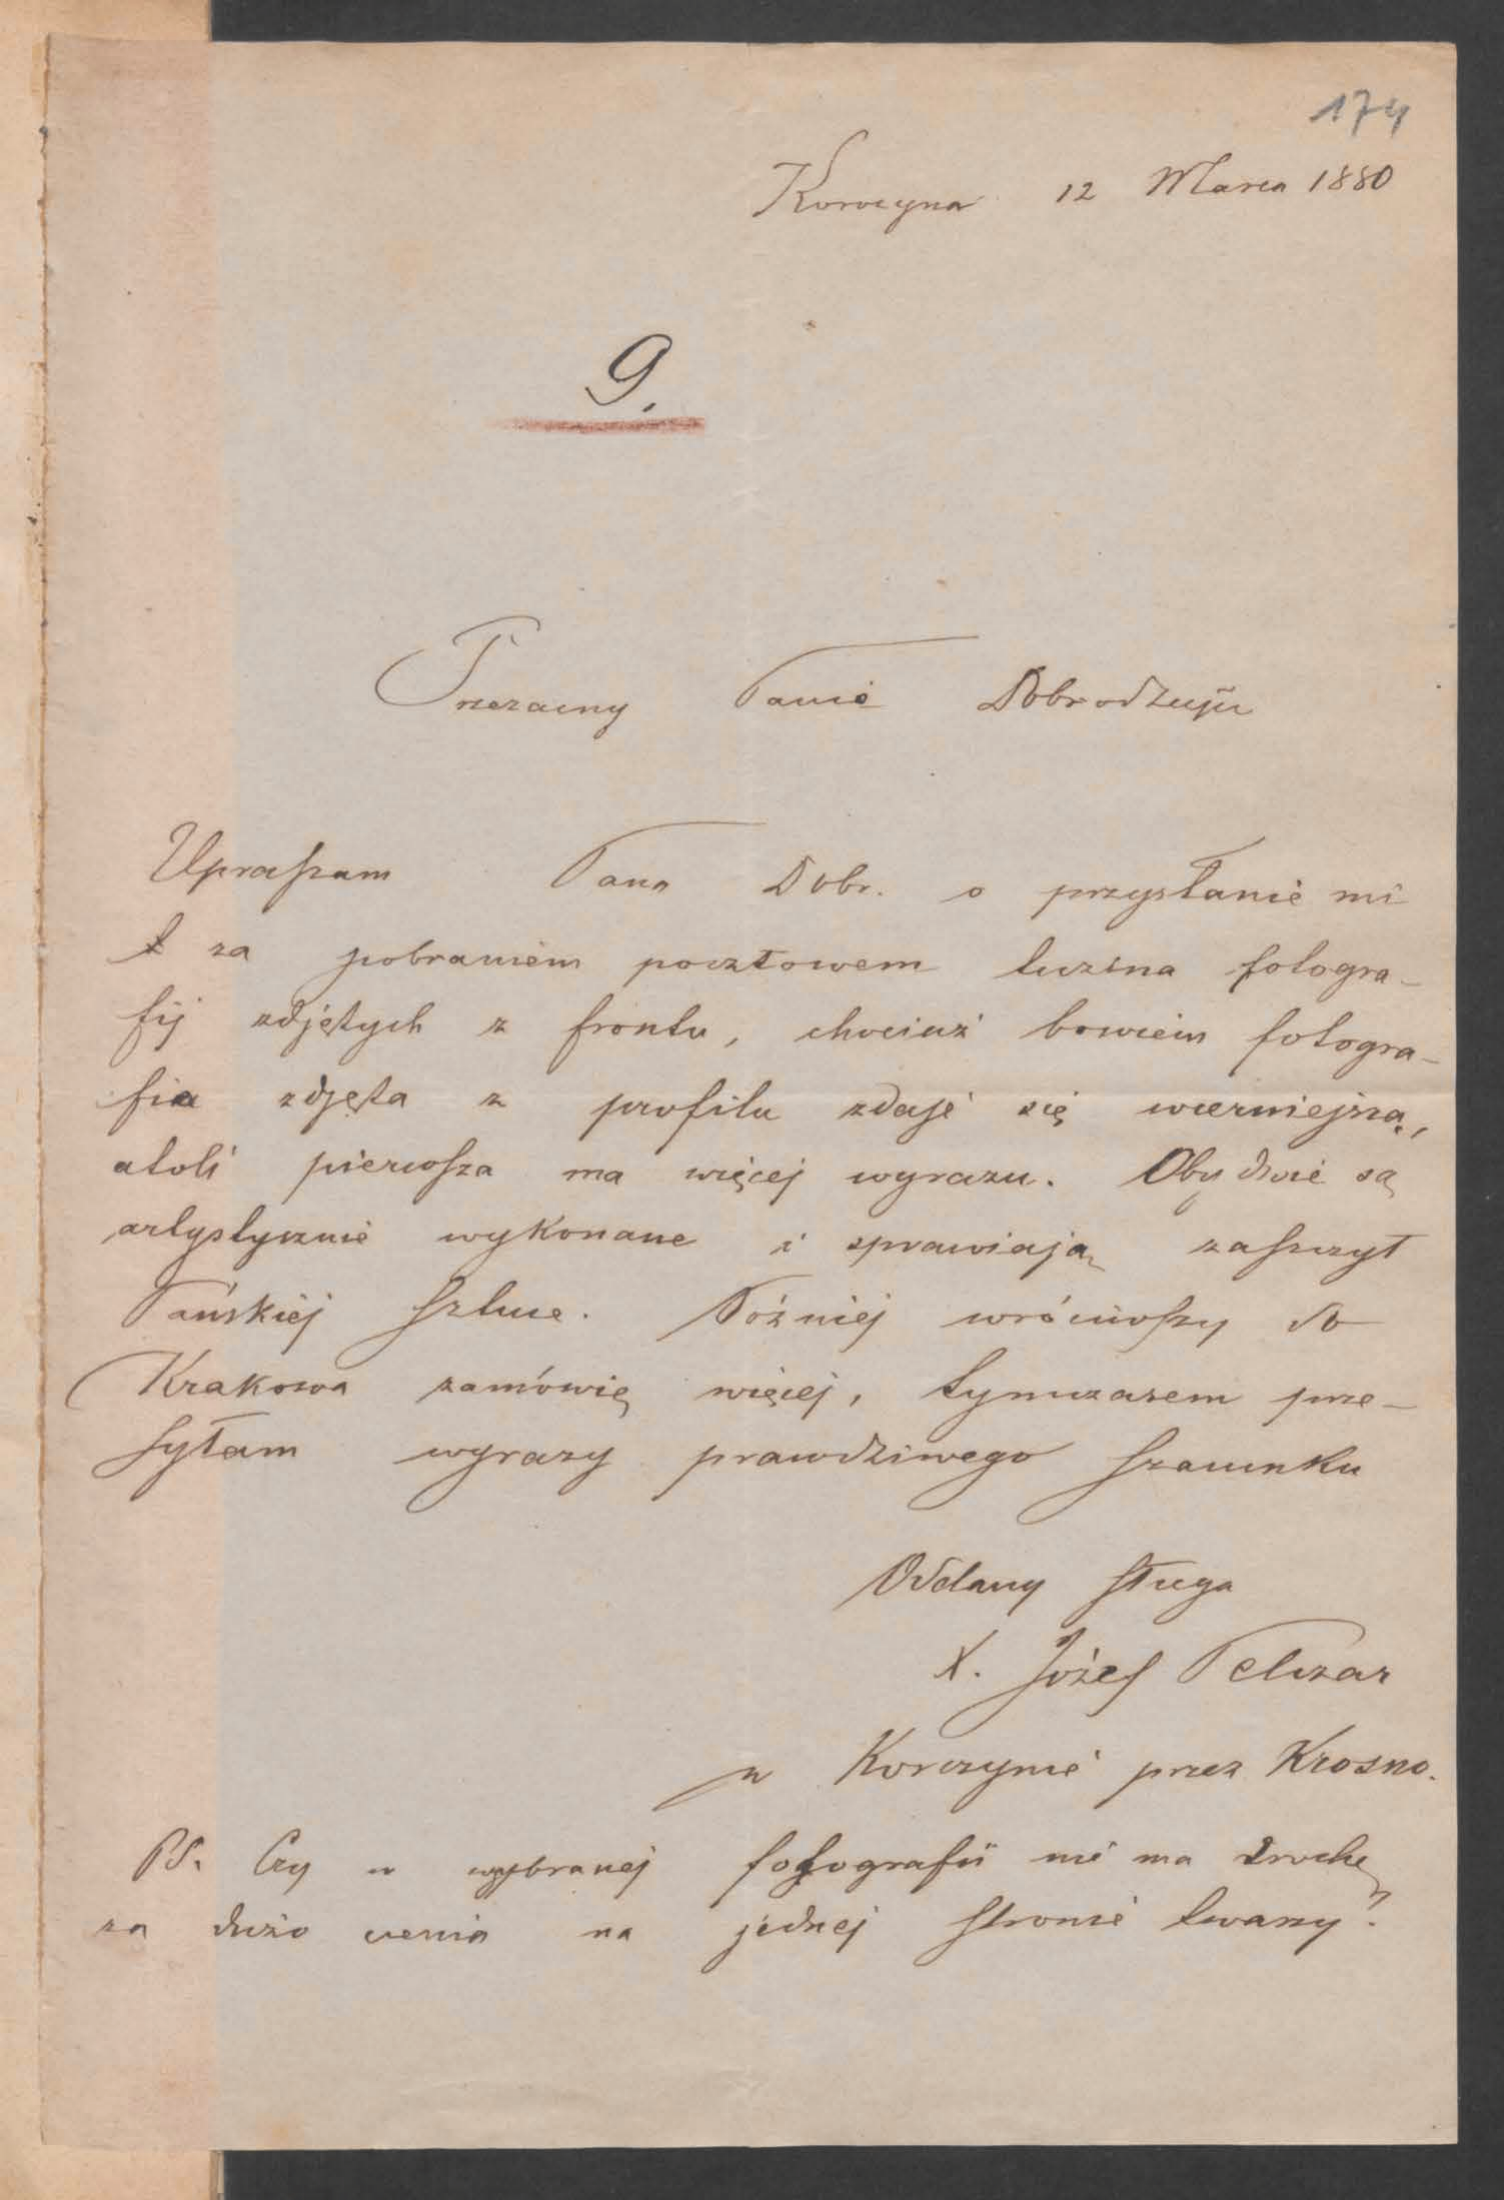 174
Korczyna 12 Marca 1880
9.
Przezacny Panie Dobrodzieju
Upraszam Pana Dobr. o przysłanie mi
za pobraniem pocztowem tuzina fotogra-
fij zdjętych z frontu, chociaż bowiem fotogra-
fia zdjęta z profilu zdaje się wierniejszą,
atoli pierwsza ma więcej wyrazu. Obydwie są
artystycznie wykonane i sprawiają zaszczyt
Pańskiej sztuce. Później wróciwszy do
Krakowa zamówię więcej, tymczasem prze-
syłam wyrazy prawdziwego szacunku
Oddany sługa
X. Józef Pelczar
w Korczynie przez Krosno.
PS. Czy w wybranej fotografii nie ma trochę
za dużo cienia na jednej stronie twarzy?